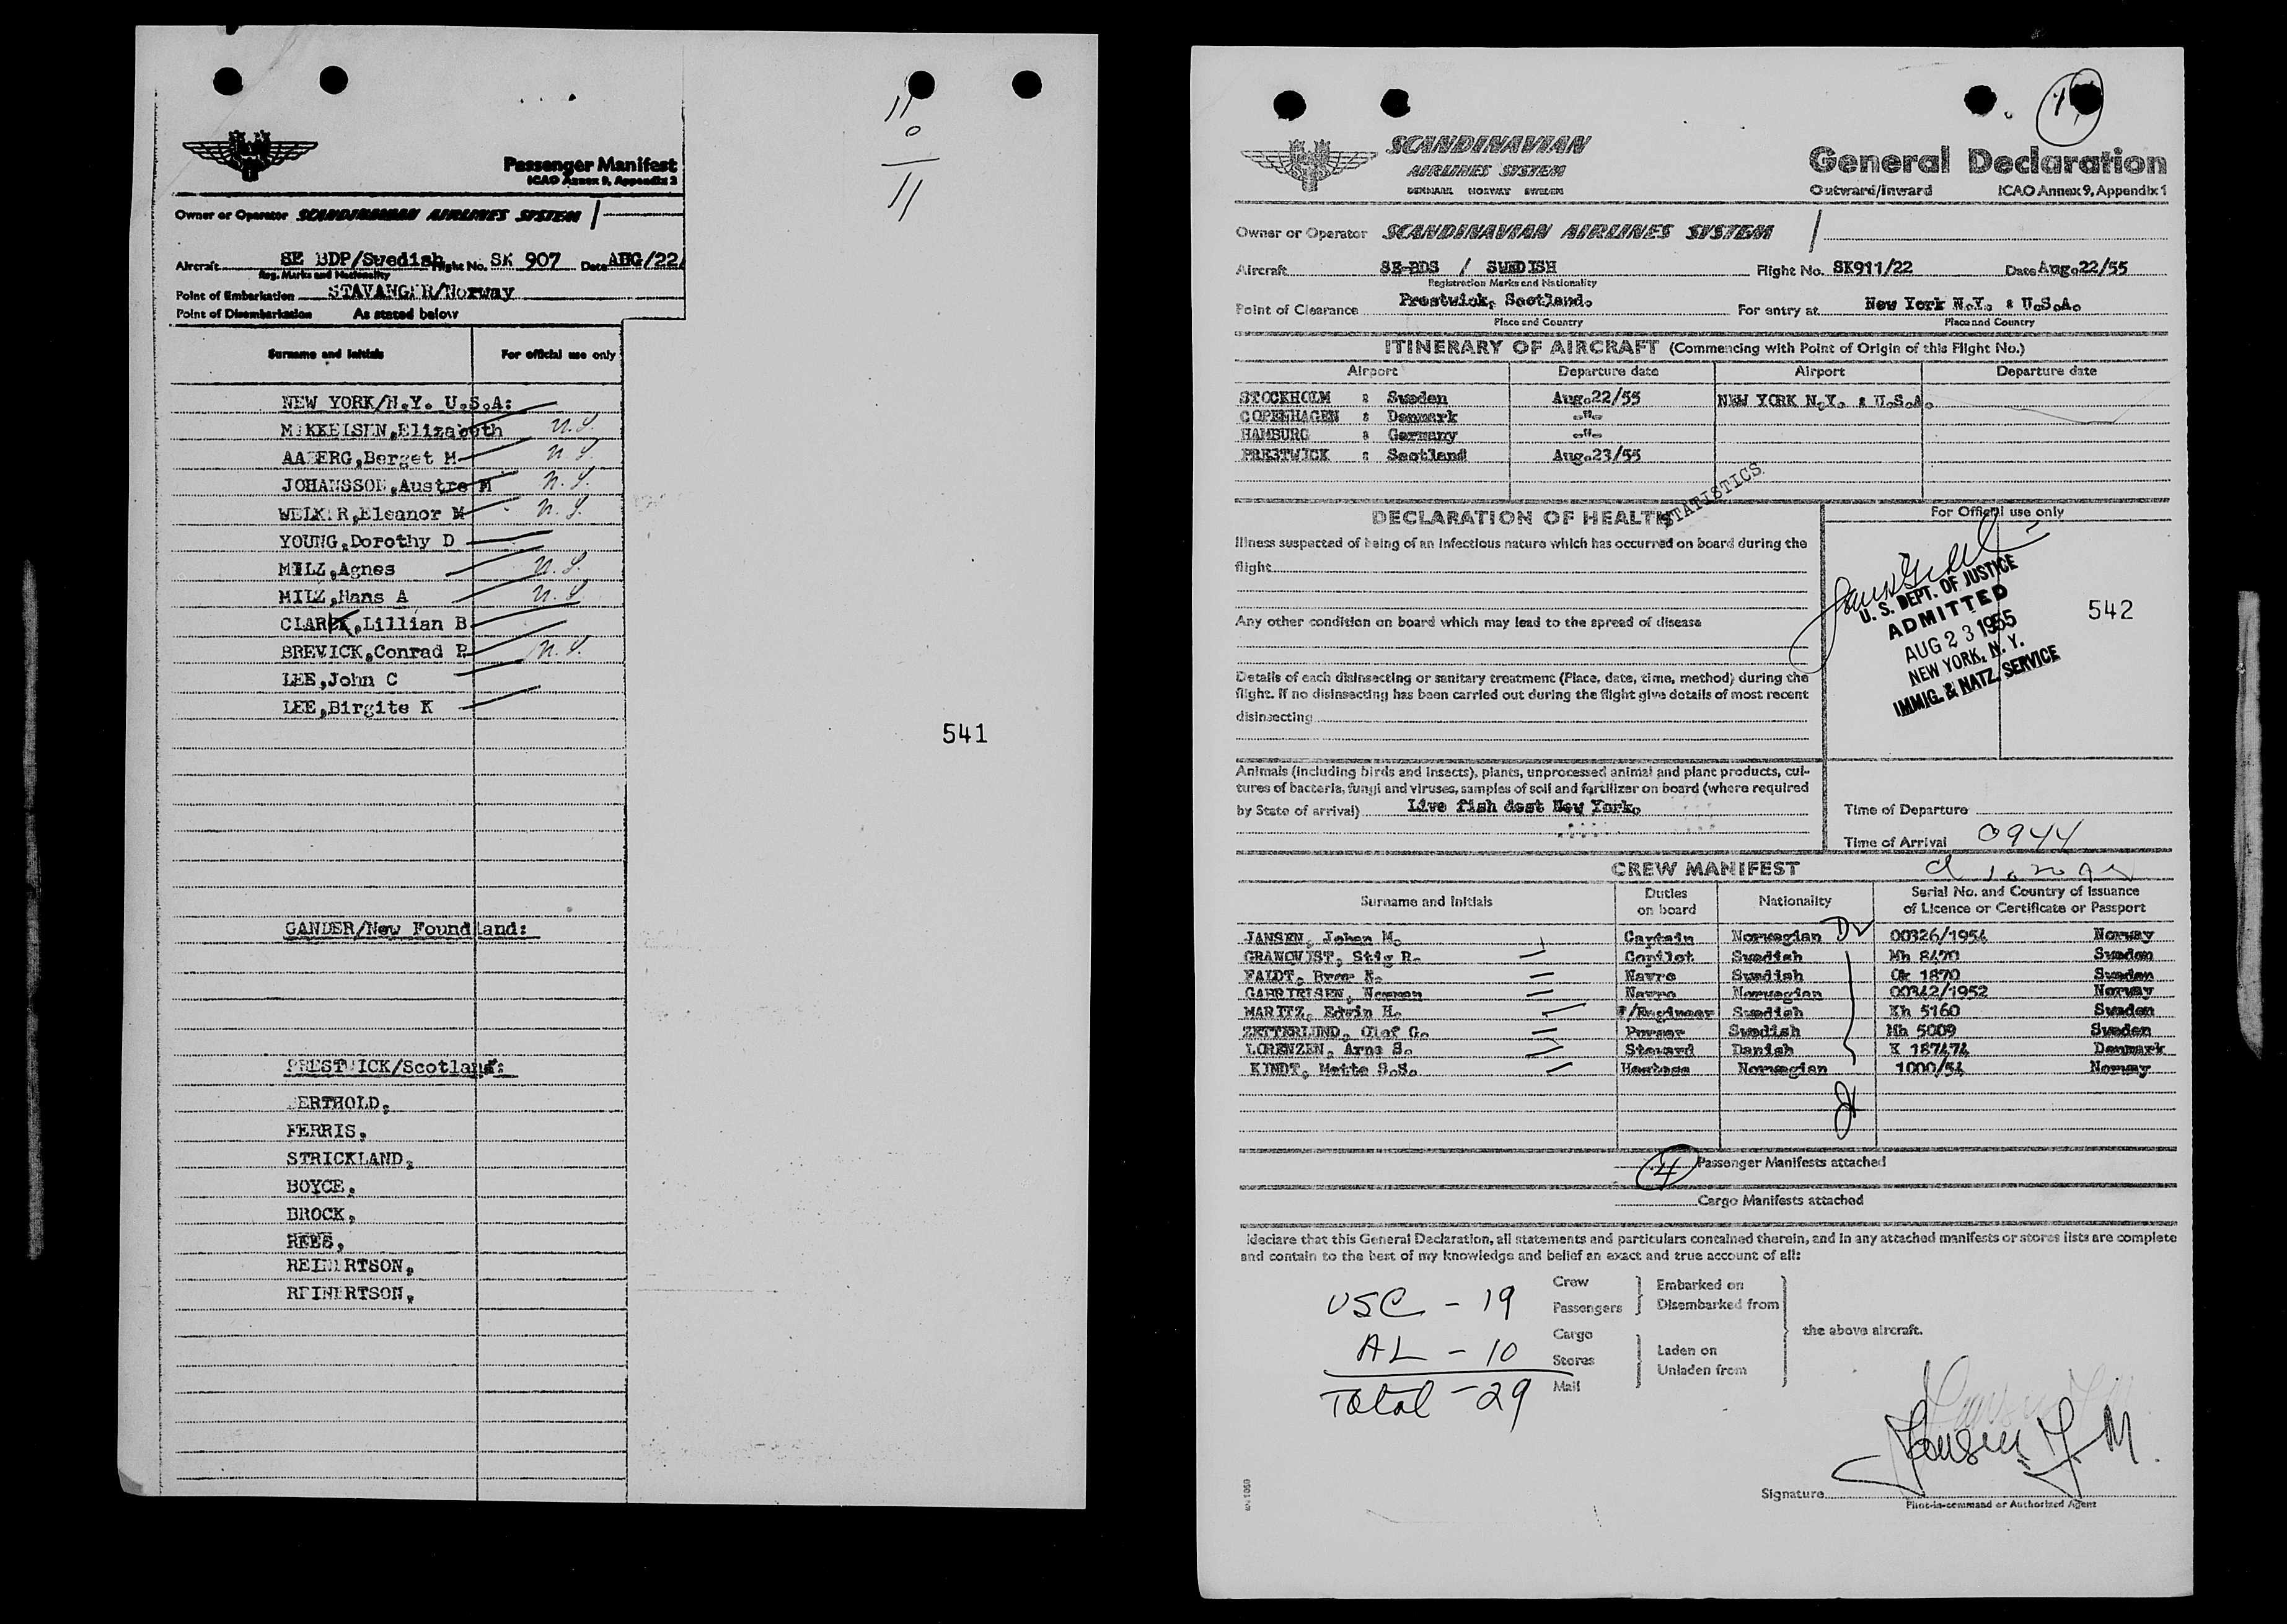 11
0
11
Passenger Manifest
ICAO Annex 9, Appendix 2
Owner or Operator SCANDINAVIAN AIRLINES SYSTEM /
Aircraft SE BDP/Swedish Flight No. SK 907 Date AUG/22/
Reg. Marks and Nationality
Point of Embarkation STAVANGER/Norway
Point of Disembarkation As stated below
Surname and Initials For official use only
NEW YORK/N.Y. U.S.A:
MIKKELSEN,Elizabeth N.S.
AABERG,Berget M N.S.
JOHANSSON,Austre M N.S.
WELKER,Eleanor M N.S.
YOUNG,Dorothy D
MILZ,Agnes N.S.
MILZ,Hans A N.S.
CLARK,Lillian B
BREVICK,Conrad P N.S.
LEE,John C
LEE,Birgite K
541
GANDER/New Foundland:
PRESTWICK/Scotland:
BERTHOLD,
FERRIS,
STRICKLAND,
BOYCE,
BROCK,
REES,
REINERTSON,
REINERTSON,
SCANDINAVIAN
AIRLINES SYSTEM
DENMARK NORWAY SWEDEN
General Declaration
Outward/Inward ICAO Annex 9, Appendix 1
Owner or Operator SCANDINAVIAN AIRLINES SYSTEM /
Aircraft SE-BDS / SWEDISH Flight No. SK911/22 Date Aug.22/55
Registration Marks and Nationality
Point of Clearance Prestwick, Scotland. For entry at New York N.Y. : U.S.A.
Place and Country Place and Country
ITINERARY OF AIRCRAFT (Commencing with Point of Origin of this Flight No.)
Airport Departure date Airport Departure date
STOCKHOLM : Sweden Aug.22/55 NEW YORK N.Y. : U.S.A.
COPENHAGEN : Denmark -"-
HAMBURG : Germany -"-
PRESTWICK : Scotland Aug.23/55
STATISTICS
DECLARATION OF HEALTH For Official use only
Illness suspected of being of an infectious nature which has occurred on board during the
flight
Any other condition on board which may lead to the spread of disease
Details of each disinsecting or sanitary treatment (Place, date, time, method) during the
flight. If no disinsecting has been carried out during the flight give details of most recent
disinsecting
U. S. DEPT. OF JUSTICE
ADMITTED
AUG 23 1955
NEW YORK, N. Y.
IMMIG. & NATZ. SERVICE
542
Animals (including birds and insects), plants, unprocessed animal and plant products, cul-
tures of bacteria, fungi and viruses, samples of soil and fertilizer on board (where required
by State of arrival) Live fish dest New York.
Time of Departure
Time of Arrival 0944
CREW MANIFEST
Surname and Initials Duties on board Nationality Serial No. and Country of Issuance of Licence or Certificate or Passport
JANSEN, Johan M. Captain Norwegian 00326/1954 Norway
GRANQVIST, Stig R. Copilot Swedish Mh 8470 Sweden
FALDT, K. Navro Swedish Ok 1870 Sweden
GABRIELSEN, Norman Navro Norwegian 00342/1952 Norway
MARITZ, Edwin H. F/Engineer Swedish Kh 5160 Sweden
ZETTERLUND, Olof G. Purser Swedish Mh 5009 Sweden
LORENZEN, Arne S. Steward Danish K 187474 Denmark
KINDT, Mette S.S. Hostess Norwegian 1000/54 Norway
4 Passenger Manifests attached
Cargo Manifests attached
I declare that this General Declaration, all statements and particulars contained therein, and in any attached manifests or stores lists are complete
and contain to the best of my knowledge and belief an exact and true account of all:
Crew
Passengers
Embarked on
Disembarked from
Cargo
Stores
Mail
Laden on
Unladen from
the above aircraft.
USC - 19
AL - 10
Total - 29
Jansen J M.
Signature
Pilot-in-command or Authorized Agent